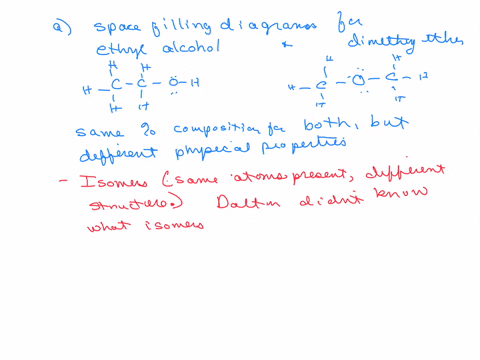 a) space filling diagrams for
ethyl alcohol & dimethyl ether
H H H H
H - C - C - Ö - H H - C - Ö - C - H
H H H H
same % composition for both, but
different physical properties
- Isomers (same atoms present, different
structure.) Dalton didn't know
what isomers